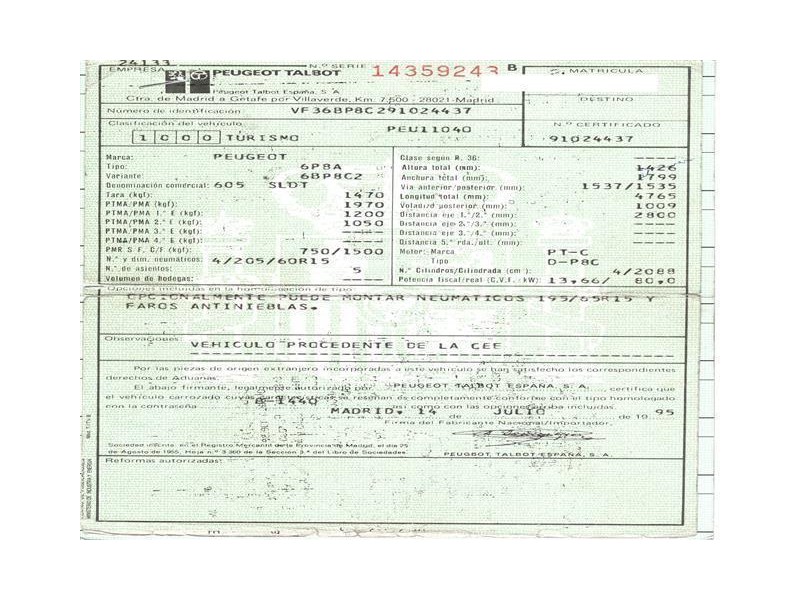 24133
EMPRESA Nº SERIE 14359243 B MATRICULA
PEUGEOT TALBOT
Peugeot Talbot España, S. A.
Ctra. de Madrid a Getafe por Villaverde, Km. 7,500 - 28021-Madrid DESTINO
Número de identificación VF36BP8C291024437
Clasificación del vehículo PEU11040 N.º CERTIFICADO
1000 TURISMO 91024437
Marca: PEUGEOT
Tipo: 6P8A
Variante: 6BP8C2
Denominación comercial: 605 SLDT
Tara (kgf): 1470
PTMA/PMA (kgf): 1970
PTMA/PMA 1.º E (kgf): 1200
PTMA/PMA 2.º E (kgf): 1050
PTMA/PMA 3.º E (kgf): ----
PTMA/PMA 4.º E (kgf): ----
PMR S F, C/F (kgf): 750/1500
N.º y dim. neumáticos: 4/205/60R15
N.º de asientos: 5
Volumen de bodegas: ----
Clase según R. 36: ----
Altura total (mm): 1426
Anchura total (mm): 1799
Vía anterior/posterior (mm): 1537/1535
Longitud total (mm): 4765
Voladizo posterior (mm): 1009
Distancia eje 1.º/2.º (mm): 2800
Distancia eje 2.º/3.º (mm): ----
Distancia eje 3.º/4.º (mm): ----
Distancia 5.ª rda./ult. (mm): ----
Motor: Marca PT-C
Tipo D-P8C
N.º Cilindros/Cilindrada (cm³): 4/2088
Potencia fiscal/real (C.V.F./kW): 13,66/ 80,0
Opciones incluidas en la homologación de tipo
OPCIONALMENTE PUEDE MONTAR NEUMATICOS 195/65R15 Y
FAROS ANTINIEBLAS.
Observaciones:
VEHICULO PROCEDENTE DE LA CEE
Por las piezas de origen extranjero incorporadas a este vehículo se han satisfecho los correspondientes
derechos de Aduanas.
El abajo firmante, legalmente autorizado por PEUGEOT TALBOT ESPAÑA, S. A. certifica que
el vehículo carrozado cuyas características se reseñan es completamente conforme con el tipo homologado
con la contraseña B-1440 así como con las opciones arriba incluidas.
MADRID, 14 de JULIO de 19 95
Firma del Fabricante Nacional/Importador.
Sociedad inscrita en el Registro Mercantil de la Provincia de Madrid, el día 25
de Agosto de 1955, Hoja n.º 3.360 de la Sección 3.ª del Libro de Sociedades.
PEUGEOT TALBOT ESPAÑA, S. A.
Reformas autorizadas:
MINISTERIO DE INDUSTRIA Y ENERGIA